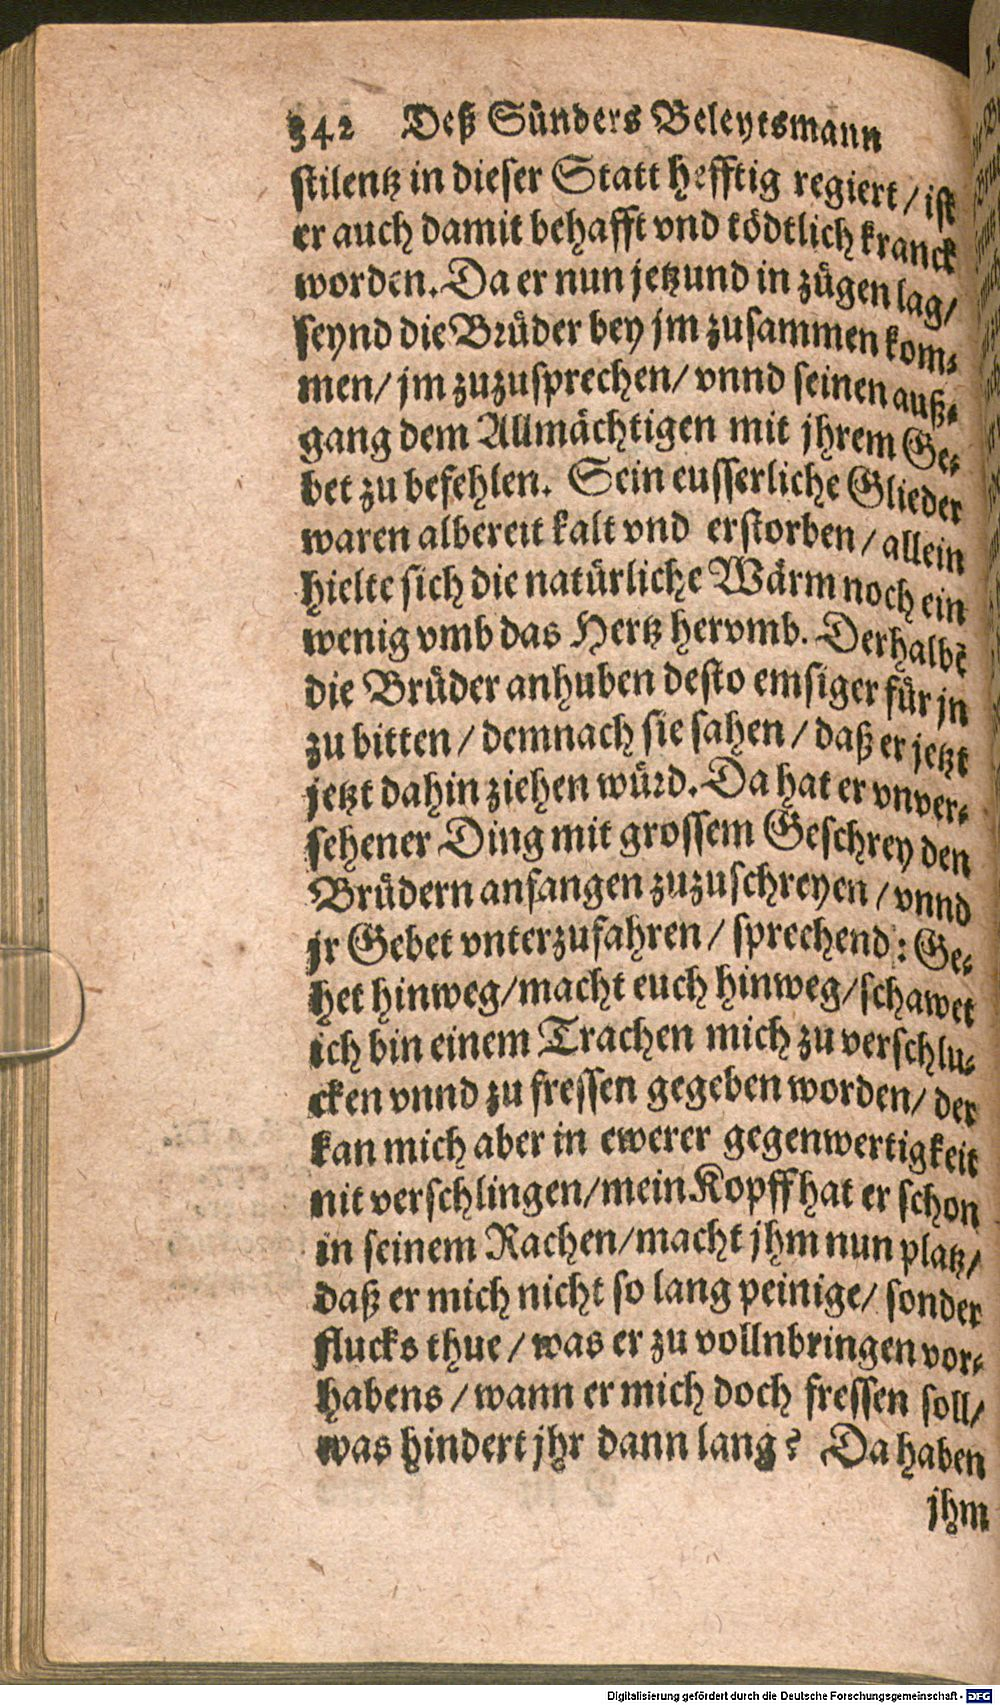 342 Deß Sünders Beleytsmann
stilentz in dieser Statt hefftig regiert / ist
er auch damit behafft vnd tödtlich kranck
worden. Da er nun jetzund in zügen lag/
seynd die Brüder bey jm zusammen kom-
men/ jm zuzusprechen/ vnnd seinen auß-
gang dem Allmächtigen mit jhrem Ge-
bet zu befehlen. Sein eusserliche Glieder
waren albereit kalt vnd erstorben / allein
hielte sich die natürliche Wärm noch ein
wenig vmb das Hertz hervmb. Derhalbẽ
die Brüder anhuben desto emsiger für jn
zu bitten / demnach sie sahen / daß er jetzt
jetzt dahin ziehen würd. Da hat er vnver-
sehener Ding mit grossem Geschrey den
Brüdern anfangen zuzuschreyen / vnnd
jr Gebet vnterzufahren / sprechend: Ge-
het hinweg/macht euch hinweg/schawet
ich bin einem Trachen mich zu verschlu-
cken vnnd zu fressen gegeben worden/ der
kan mich aber in ewerer gegenwertigkeit
nit verschlingen/mein Kopff hat er schon
in seinem Rachen/macht jhm nun platz/
daß er mich nicht so lang peinige/ sonder
flucks thue / was er zu vollnbringen vor-
habens / wann er mich doch fressen soll/
was hindert jhr dann lang? Da haben
jhm
Digitalisierung gefördert durch die Deutsche Forschungsgemeinschaft - DFG